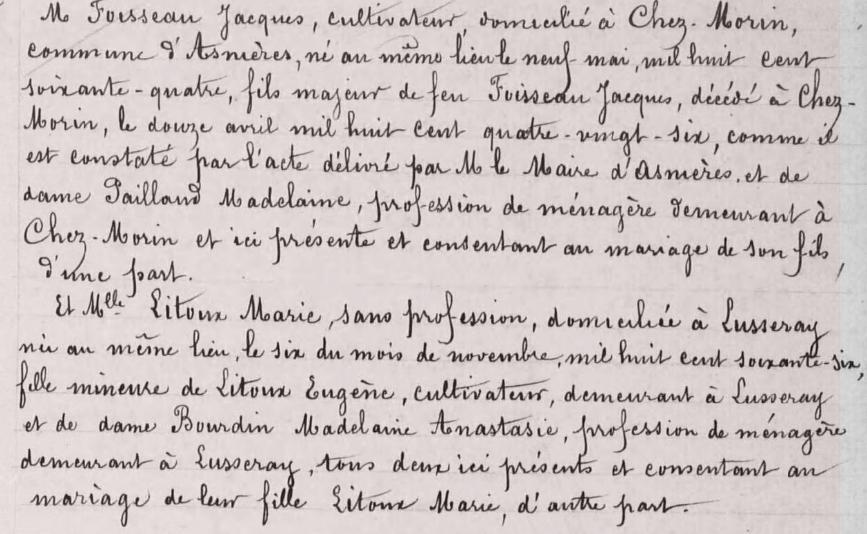 M Foisseau Jacques, cultivateur, domicilié à Chez-Morin,
commune d'Asnières, né au même lieu le neuf mai, mil huit cent
soixante-quatre, fils majeur de feu Foisseau Jacques, décédé à Chez-
Morin, le douze avril mil huit cent quatre-vingt-six, comme il
est constaté par l'acte délivré par M le Maire d'Asnières, et de
dame Paillaud Madelaine, profession de ménagère demeurant à
Chez-Morin et ici présente et consentant au mariage de son fils,
d'une part.
Et Mlle Litoux Marie, sans profession, domiciliée à Lusseray
née au même lieu, le six du mois de novembre, mil huit cent soixante-six,
fille mineure de Litoux Eugène, cultivateur, demeurant à Lusseray
et de dame Bourdin Madelaine Anastasie, profession de ménagère
demeurant à Lusseray, tous deux ici présents et consentant au
mariage de leur fille Litoux Marie, d'autre part.